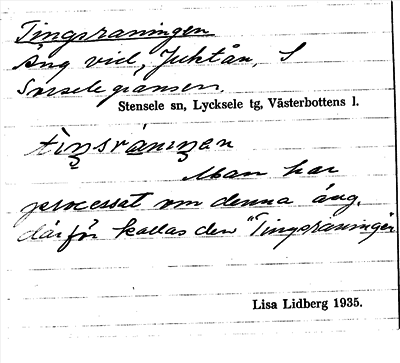 Tingsraningen
Äng vid Juktån, S
Sorselegränsen.
Stensele sn, Lycksele tg, Västerbottens l.
tiŋsráninen
Man har
processat om denna äng,
därför kallas den "Tingsraningen
Lisa Lidberg 1935.